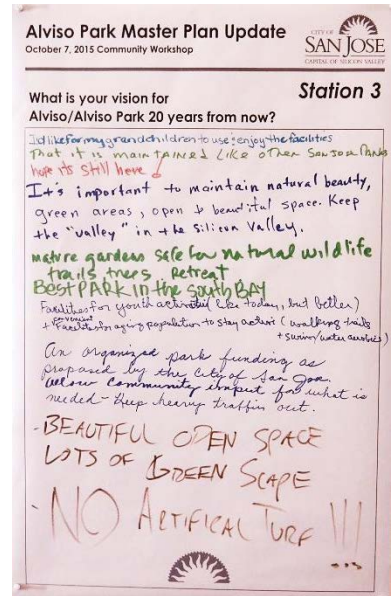 Alviso Park Master Plan Update
October 7, 2015 Community Workshop
CITY OF
SAN JOSE
CAPITAL OF SILICON VALLEY
Station 3
What is your vision for
Alviso/Alviso Park 20 years from now?
I'd like for my grandchildren to use & enjoy the facilities
That it is maintained like other San Jose Parks
hope it's still here
It's important to maintain natural beauty,
green areas, open & beautiful space. Keep
the "valley" in the Silicon Valley.
nature gardens safe for natural wildlife
trails trees Retreat
BEST PARK in the SOUTH BAY
Facilities for youth activities (like today, but better)
+ convenient
Facilities for aging population to stay active (walking trails
+ swim/water aerobics)
An organized park funding as
proposed by the city of San Jose.
allow community input for what is
needed - Keep heavy traffic out.
- BEAUTIFUL OPEN SPACE
LOTS OF GREEN SCAPE
- NO ARTIFICAL TURF !!!